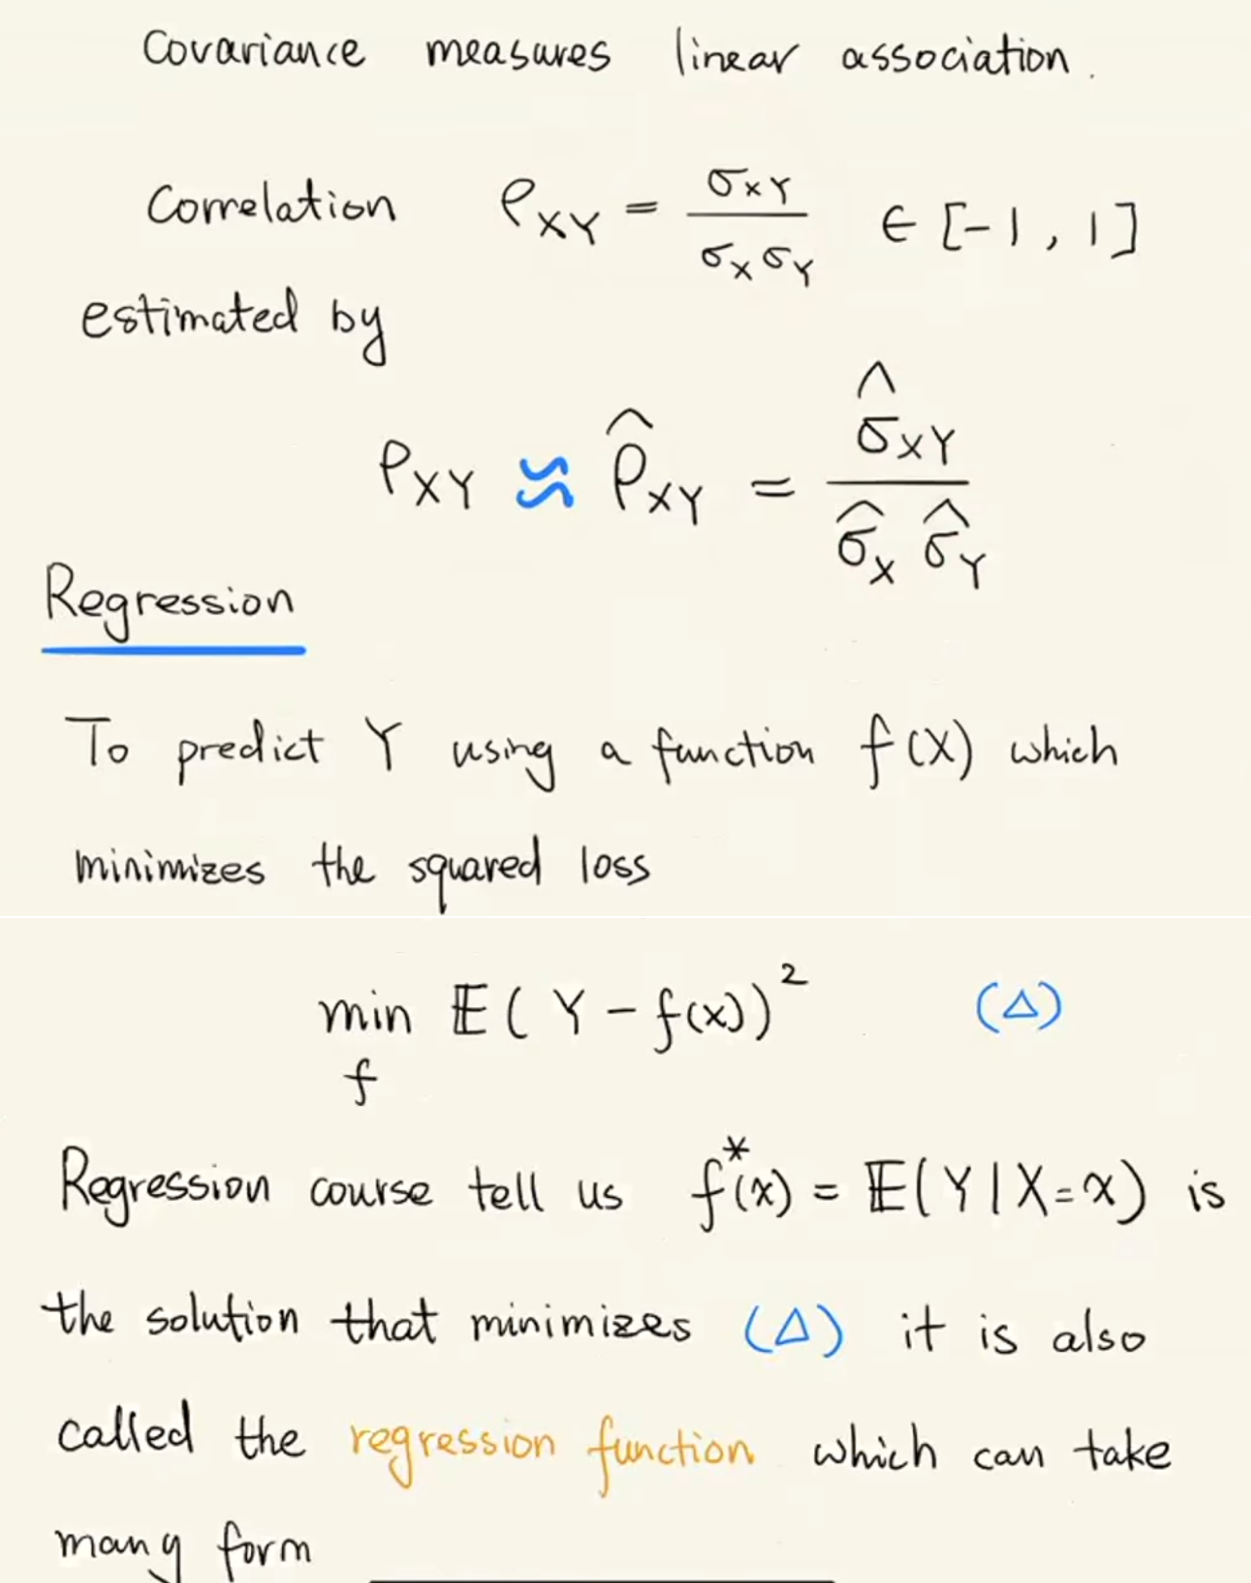 Covariance measures linear association.
Correlation ρ_XY = σ_XY / σ_X σ_Y ∈ [-1, 1]
estimated by
ρ_XY ≈ ρ̂_XY = σ̂_XY / σ̂_X σ̂_Y
Regression
To predict Y using a function f(X) which
minimizes the squared loss
min_f 𝔼(Y - f(x))² (Δ)
Regression course tell us f*(x) = 𝔼(Y|X=x) is
the solution that minimizes (Δ) it is also
called the regression function which can take
many form